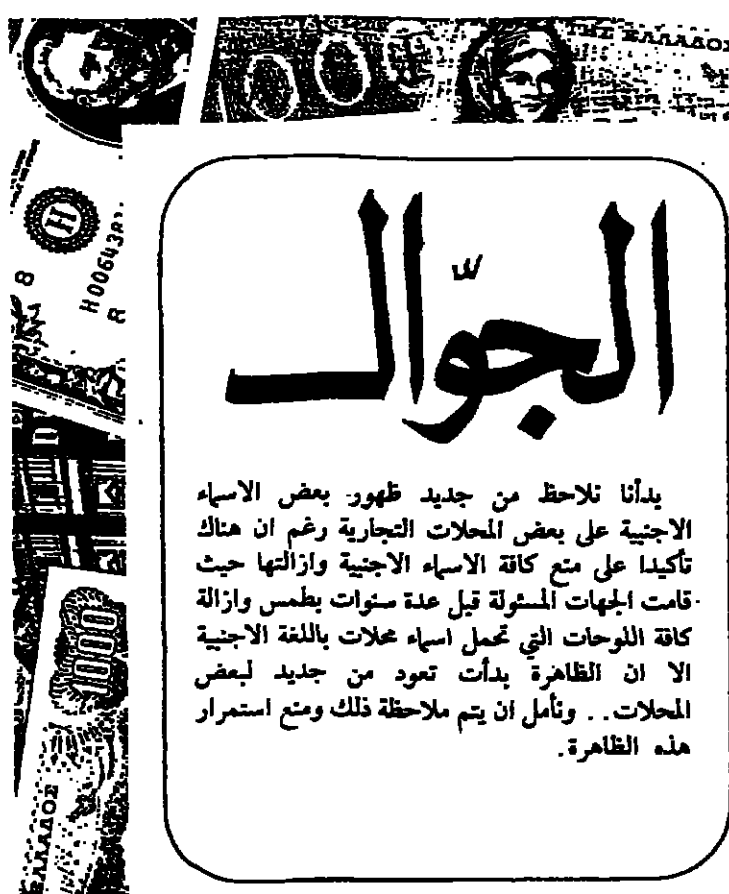 ΤΗΣ ΕΛΛΑΔΟΣ
1000
H
H006438
8
الجوّال
بدأنا نلاحظ من جديد ظهور بعض الاسماء
الاجنبية على بعض المحلات التجارية رغم ان هناك
تأكيدا على منع كافة الاسماء الاجنبية وازالتها حيث
قامت الجهات المسئولة قبل عدة سنوات بطمس وازالة
كافة اللوحات التي تحمل اسماء محلات باللغة الاجنبية
الا ان الظاهرة بدأت تعود من جديد لبعض
المحلات.. ونأمل ان يتم ملاحظة ذلك ومنع استمرار
هذه الظاهرة.
1000
ΕΛΛΑΔΟΣ